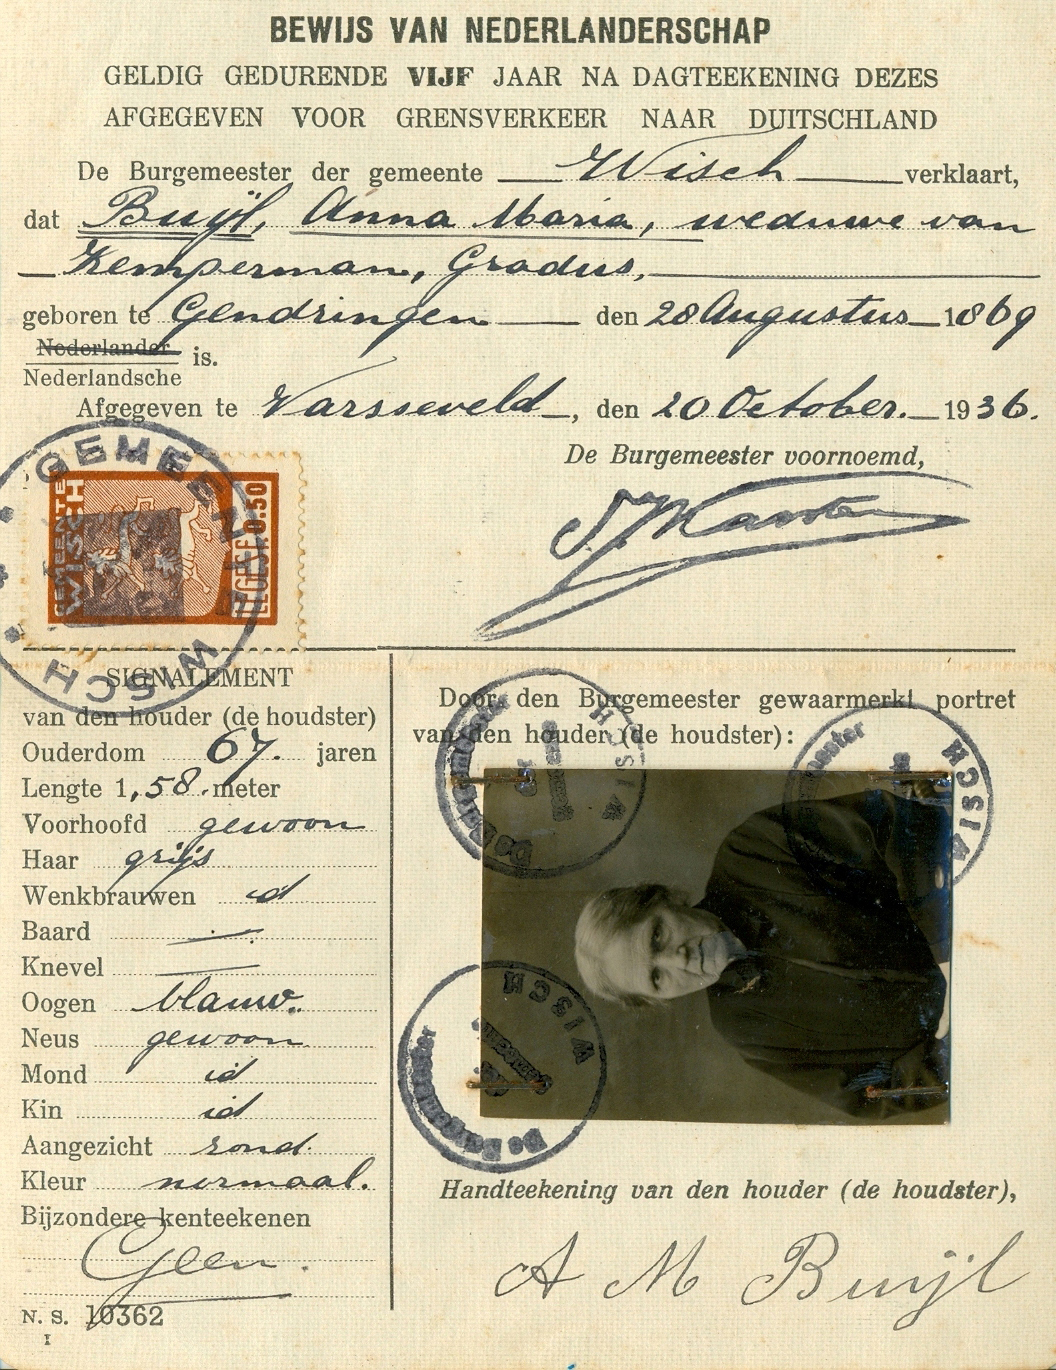 BEWIJS VAN NEDERLANDERSCHAP
GELDIG GEDURENDE VIJF JAAR NA DAGTEEKENING DEZES
AFGEGEVEN VOOR GRENSVERKEER NAAR DUITSCHLAND
De Burgemeester der gemeente Wisch verklaart,
dat Buijl, Anna Maria, weduwe van
Kemperman, Gradus,
geboren te Gendringen den 28 Augustus 1869
Nederlander is.
Nederlandsche
Afgegeven te Varsseveld, den 20 October. 1936.
De Burgemeester voornoemd,
GEMEENTE WISCH
GEMEENTE
WISCH
LEGES F 0.50
SIGNALEMENT
van den houder (de houdster)
Ouderdom 67. jaren
Lengte 1,58. meter
Voorhoofd gewoon
Haar grijs
Wenkbrauwen id
Baard —
Knevel —
Oogen blauw.
Neus gewoon
Mond id
Kin id
Aangezicht rond.
Kleur normaal.
Bijzondere kenteekenen
Geen.
N. S. 10362
I
Door den Burgemeester gewaarmerkt portret
van den houder (de houdster):
De Burgemeester der Gemeente WISCH
Burgemeester WISCH
De Burgemeester der Gemeente WISCH
Handteekening van den houder (de houdster),
A M Buijl